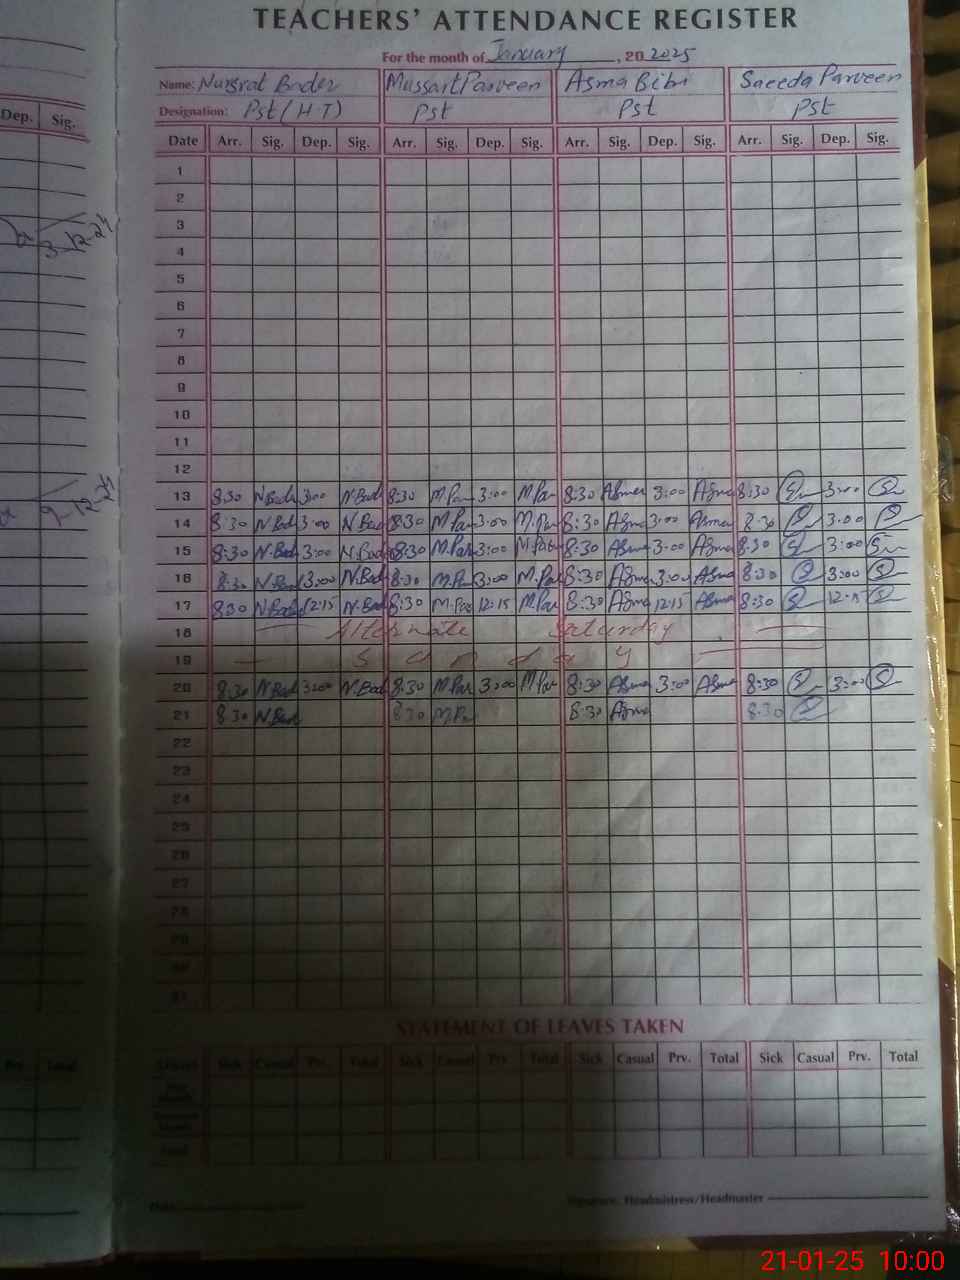 TEACHERS' ATTENDANCE REGISTER
For the month of January, 20 2025
Name: Nusrat Bader Mussart Parveen Asma Bibi Saeeda Parveen
Designation: Pst (H-T) Pst Pst Pst
Dep. Sig.
Date Arr. Sig. Dep. Sig. Arr. Sig. Dep. Sig. Arr. Sig. Dep. Sig. Arr. Sig. Dep. Sig.
1
2
3
4
5
6
7
8
9
10
11
12
13 8:30 N.Bad 3:00 N.Bad 8:30 M.Par 3:00 M.Par 8:30 Asma 3:00 Asma 8:30 3:00
14 8:30 N.Bad 3:00 N.Bad 8:30 M.Par 3:00 M.Par 8:30 Asma 3:00 Asma 8:30 3:00
15 8:30 N.Bad 3:00 N.Bad 8:30 M.Par 3:00 M.Par 8:30 Asma 3:00 Asma 8:30 3:00
16 8:30 N.Bad 3:00 N.Bad 8:30 M.Par 3:00 M.Par 8:30 Asma 3:00 Asma 8:30 3:00
17 8:30 N.Bad 12:15 N.Bad 8:30 M.Par 12:15 M.Par 8:30 Asma 12:15 Asma 8:30 12:15
18 Alternate Saturday
19 Sunday
20 8:30 N.Bad 3:00 N.Bad 8:30 M.Par 3:00 M.Par 8:30 Asma 3:00 Asma 8:30 3:00
21 8:30 N.Bad 8:30 M.Par 8:30 Asma 8:30
22
23
24
25
26
27
28
29
30
31
STATEMENT OF LEAVES TAKEN
Leaves Sick Casual Prv. Total Sick Casual Prv. Total Sick Casual Prv. Total Sick Casual Prv. Total
Prv. Total
Signature: Headmistress/Headmaster
21-01-25 10:00